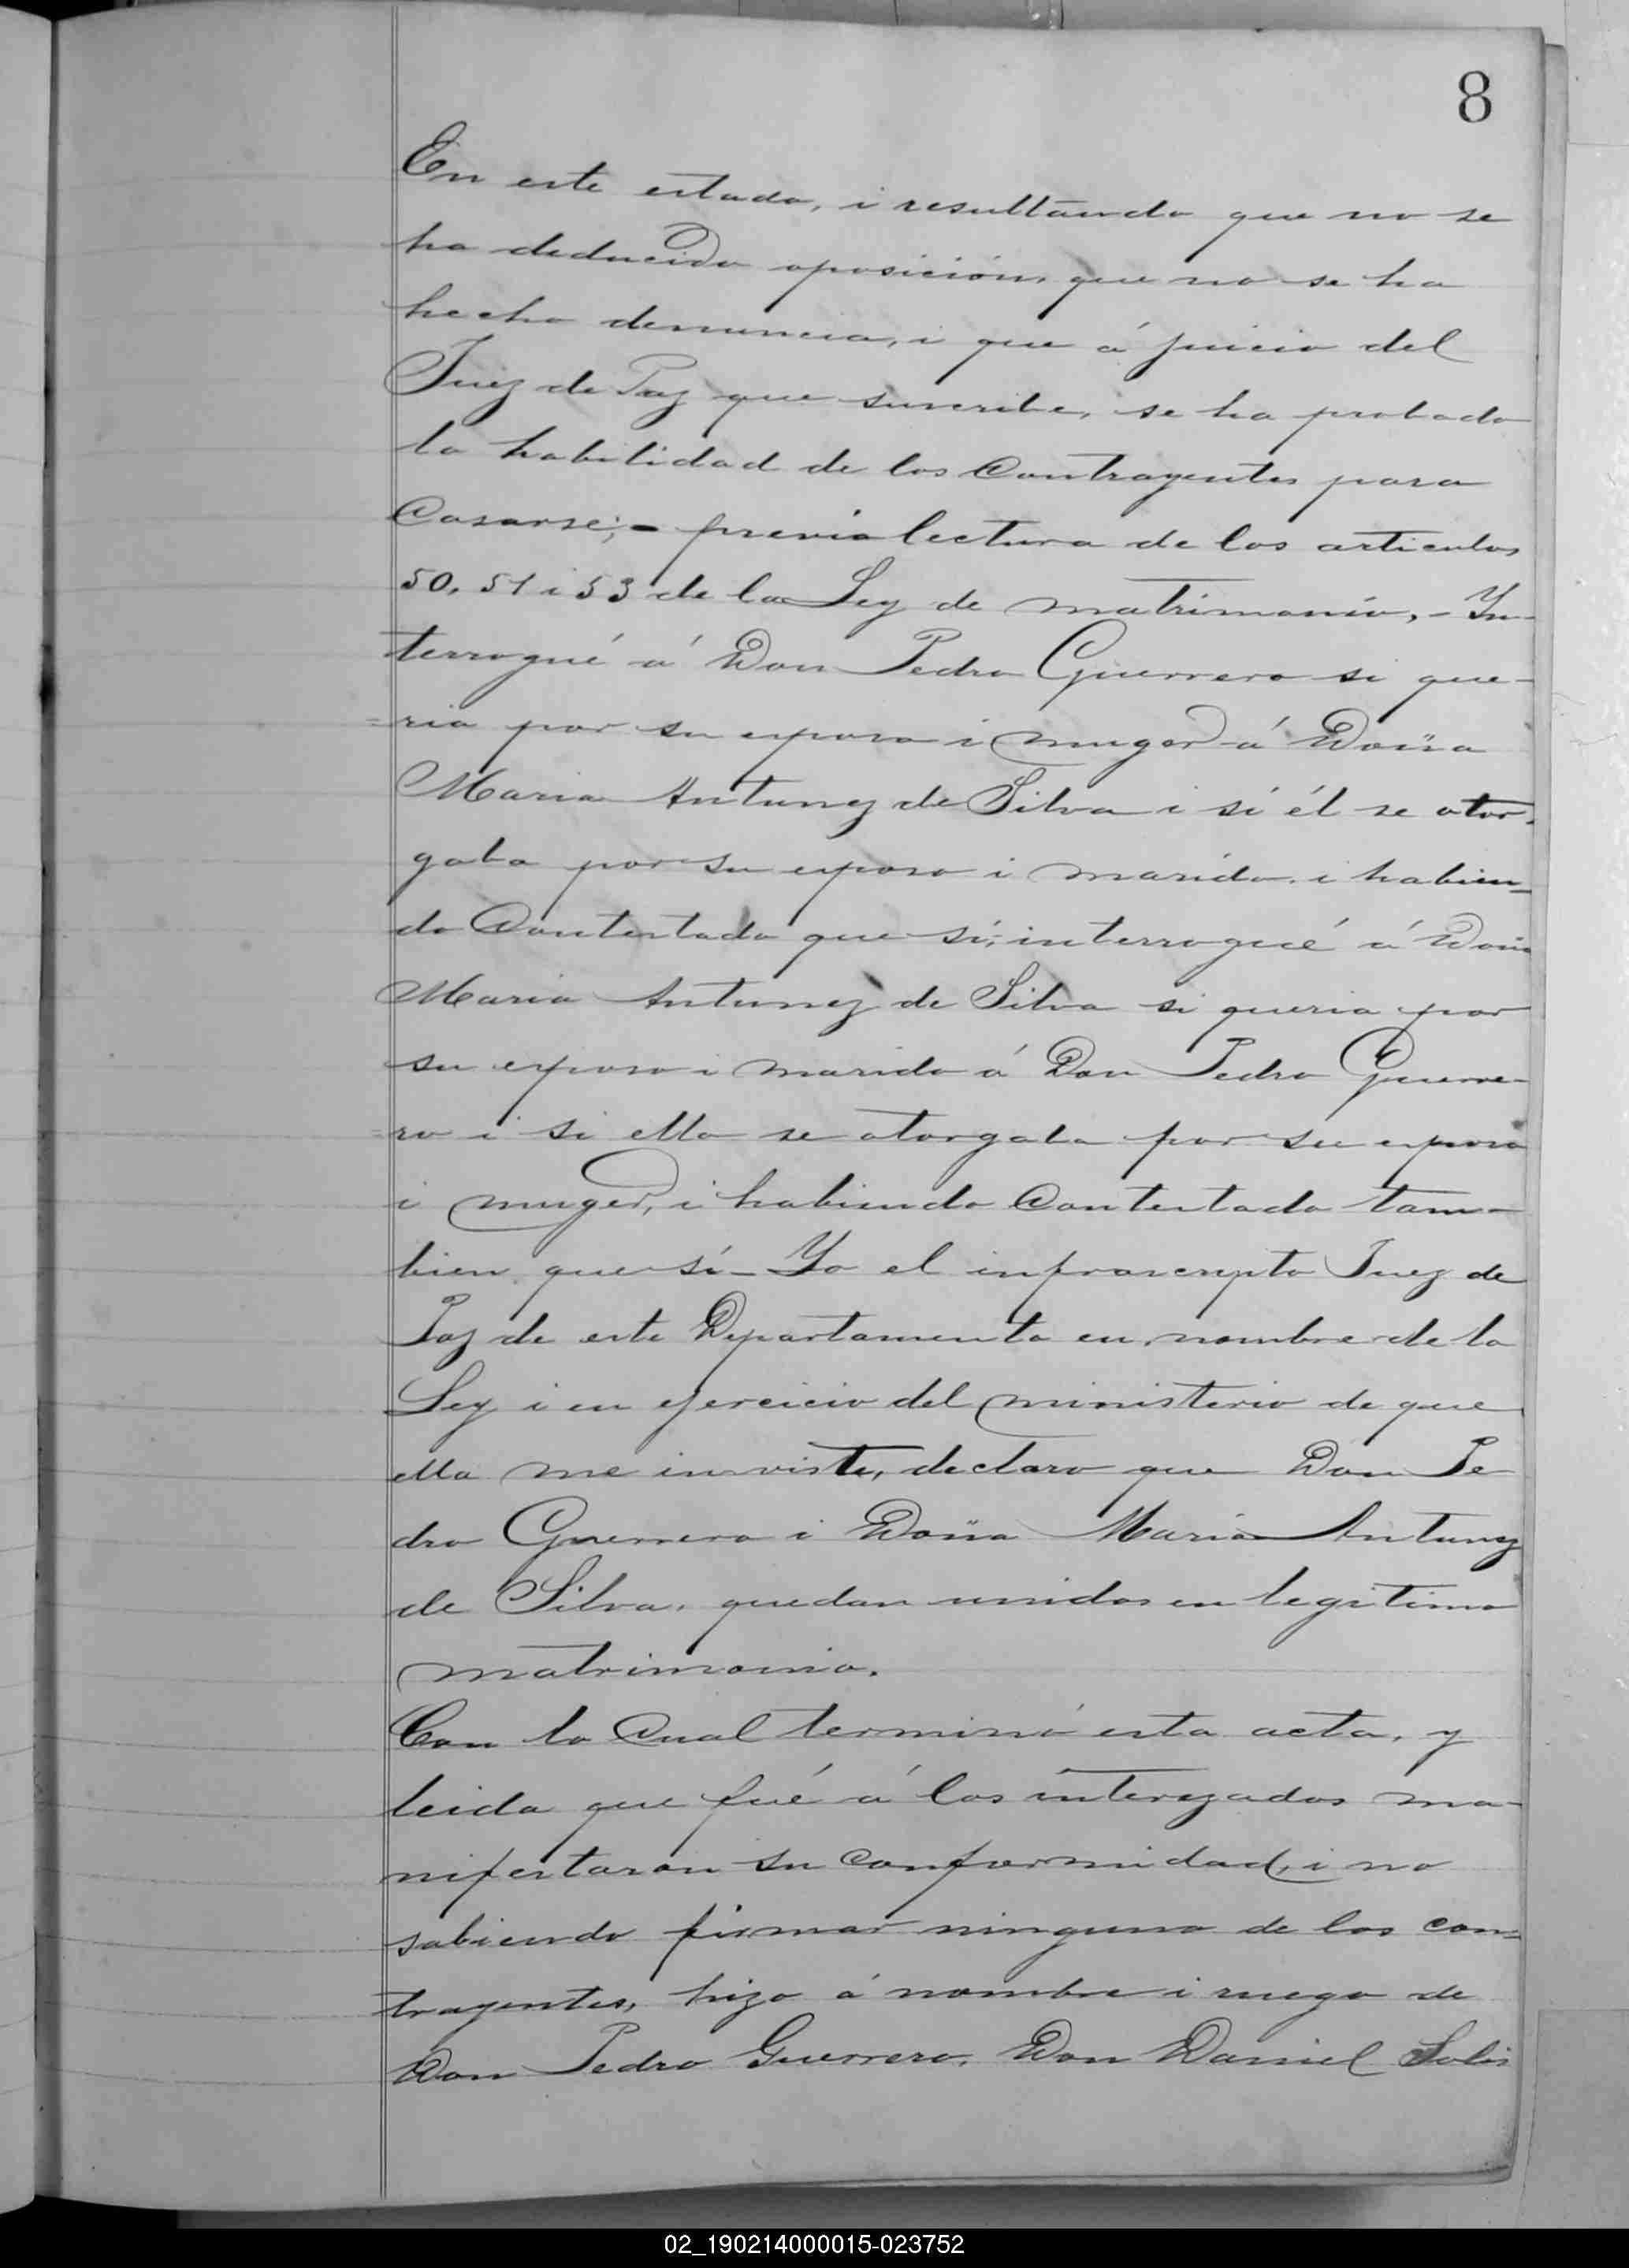 8
En este estado, i resultando que no se
ha deducido oposición, que no se ha
hecho denuncia, i que á juicio del
Juez de Paz que suscribe, se ha probado
la habilidad de los Contrayentes para
Casarse; - previa lectura de los articulos
50, 51 i 53 de la Ley de matrimonio, - In-
terrogué á Don Pedro Guerrero si que-
=ria por su esposa i muger á Doña
Maria Antunez de Silva i si él se otor-
gaba por su esposo i marido, i habien-
do Contestado que sí, interrogué á Doña
Maria Antunez de Silva si queria por
su esposo i marido á Don Pedro Guerre-
=ro i si ella se otorgaba por su esposa
i muger, i habiendo Contestado tam-
bien que sí - Yo el infrascripto Juez de
Paz de este Departamento en nombre de la
Ley i en ejercicio del ministerio de que
ella me inviste, declaro que Don Pe
dro Guerrero i Doña Maria Antunez
de Silva, quedan unidos en legitimo
matrimonio.
Con lo Cual terminó esta acta, y
leida que fué á los interezados ma-
nifestaron su Conformidad, i no
sabiendo firmar ninguno de los con=
trayentes, hizo á nombre i ruego de
Don Pedro Guerrero, Don Daniel Solis
02_190214000015-023752